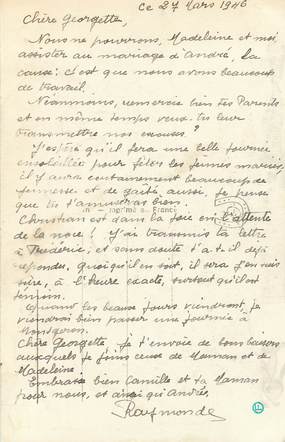 Ce 27 Mars 1946
Chère Georgette,
Nous ne pourrons, Madeleine et moi
assister au mariage d'André, la
cause: c'est que nous avons beaucoup
de travail.
Néammoins, remercie bien tes Parents
et en même temps veux-tu leur
transmettre nos excuses?
J'espère qu'il fera une belle journée
ensoleillée pour fêter les jeunes mariés,
il y aura certainement beaucoup de
jeunesse et de gaité, aussi, je pense
que tu t'amuseras bien.
Christian est dans la joie en l'attente
de la noce! J'ai transmis ta lettre
à Frédéric, et sans doute t'a-t-il déjà
répondu. Quoiqu'il en soit, il sera j'en suis
sûre, à l'heure exacte, surtout qu'il est
témoin.
Quand les beaux jours viendront, je
viendrai bien passer une journée à
Montgeron.
Chère Georgette je t'envoie de bons baisers
auxquels je joins ceux de Maman et de
Madeleine.
Embrasse bien Camille et ta Maman
pour nous, et ainsi qu'André.
Raymonde